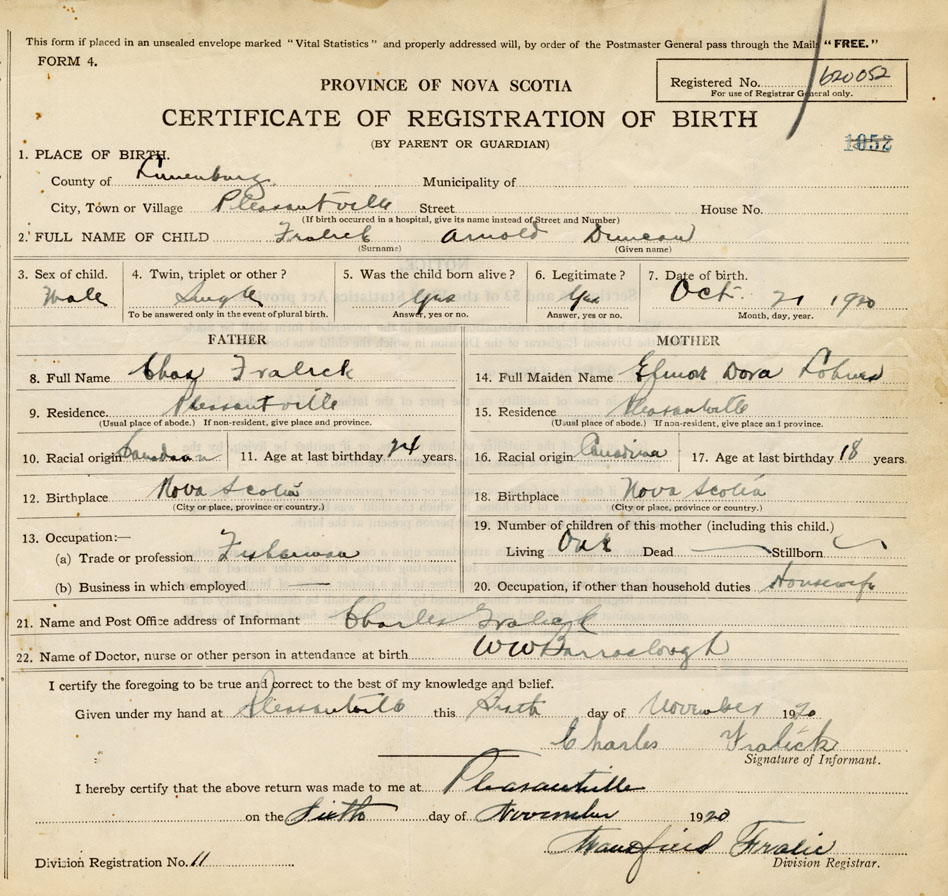 This form if placed in an unsealed envelope marked "Vital Statistics" and properly addressed will, by order of the Postmaster General pass through the Mails "FREE."
FORM 4.
Registered No. 620052
For use of Registrar General only.
PROVINCE OF NOVA SCOTIA
CERTIFICATE OF REGISTRATION OF BIRTH
(BY PARENT OR GUARDIAN)
1052
1. PLACE OF BIRTH.
County of Lunenburg Municipality of
City, Town or Village Pleasantville Street House No.
(If birth occurred in a hospital, give its name instead of Street and Number)
2. FULL NAME OF CHILD Fralick Arnold Duncan
(Surname) (Given name)
3. Sex of child. 4. Twin, triplet or other? 5. Was the child born alive? 6. Legitimate? 7. Date of birth.
Male Single Yes Yes Oct. 21 1920
To be answered only in the event of plural birth. Answer, yes or no. Answer, yes or no. Month, day, year.
FATHER
8. Full Name Chas Fralick
9. Residence. Pleasantville
(Usual place of abode.) If non-resident, give place and province.
10. Racial origin Canadian 11. Age at last birthday 24 years.
12. Birthplace Nova Scotia
(City or place, province or country.)
13. Occupation:—
(a) Trade or profession Fisherman
(b) Business in which employed
MOTHER
14. Full Maiden Name Dora
15. Residence Pleasantville
(Usual place of abode.) If non-resident, give place and province.
16. Racial origin Canadian 17. Age at last birthday 18 years.
18. Birthplace Nova Scotia
(City or place, province or country.)
19. Number of children of this mother (including this child.)
Living One Dead Stillborn
20. Occupation, if other than household duties Housewife
21. Name and Post Office address of Informant Charles Fralick
22. Name of Doctor, nurse or other person in attendance at birth WW Barraclough
I certify the foregoing to be true and correct to the best of my knowledge and belief.
Given under my hand at Pleasantville this Sixth day of November 1920
Charles Fralick
Signature of Informant.
I hereby certify that the above return was made to me at Pleasantville
on the Sixth day of November 1920
Mansfield Fralic
Division Registration No. 11 Division Registrar.